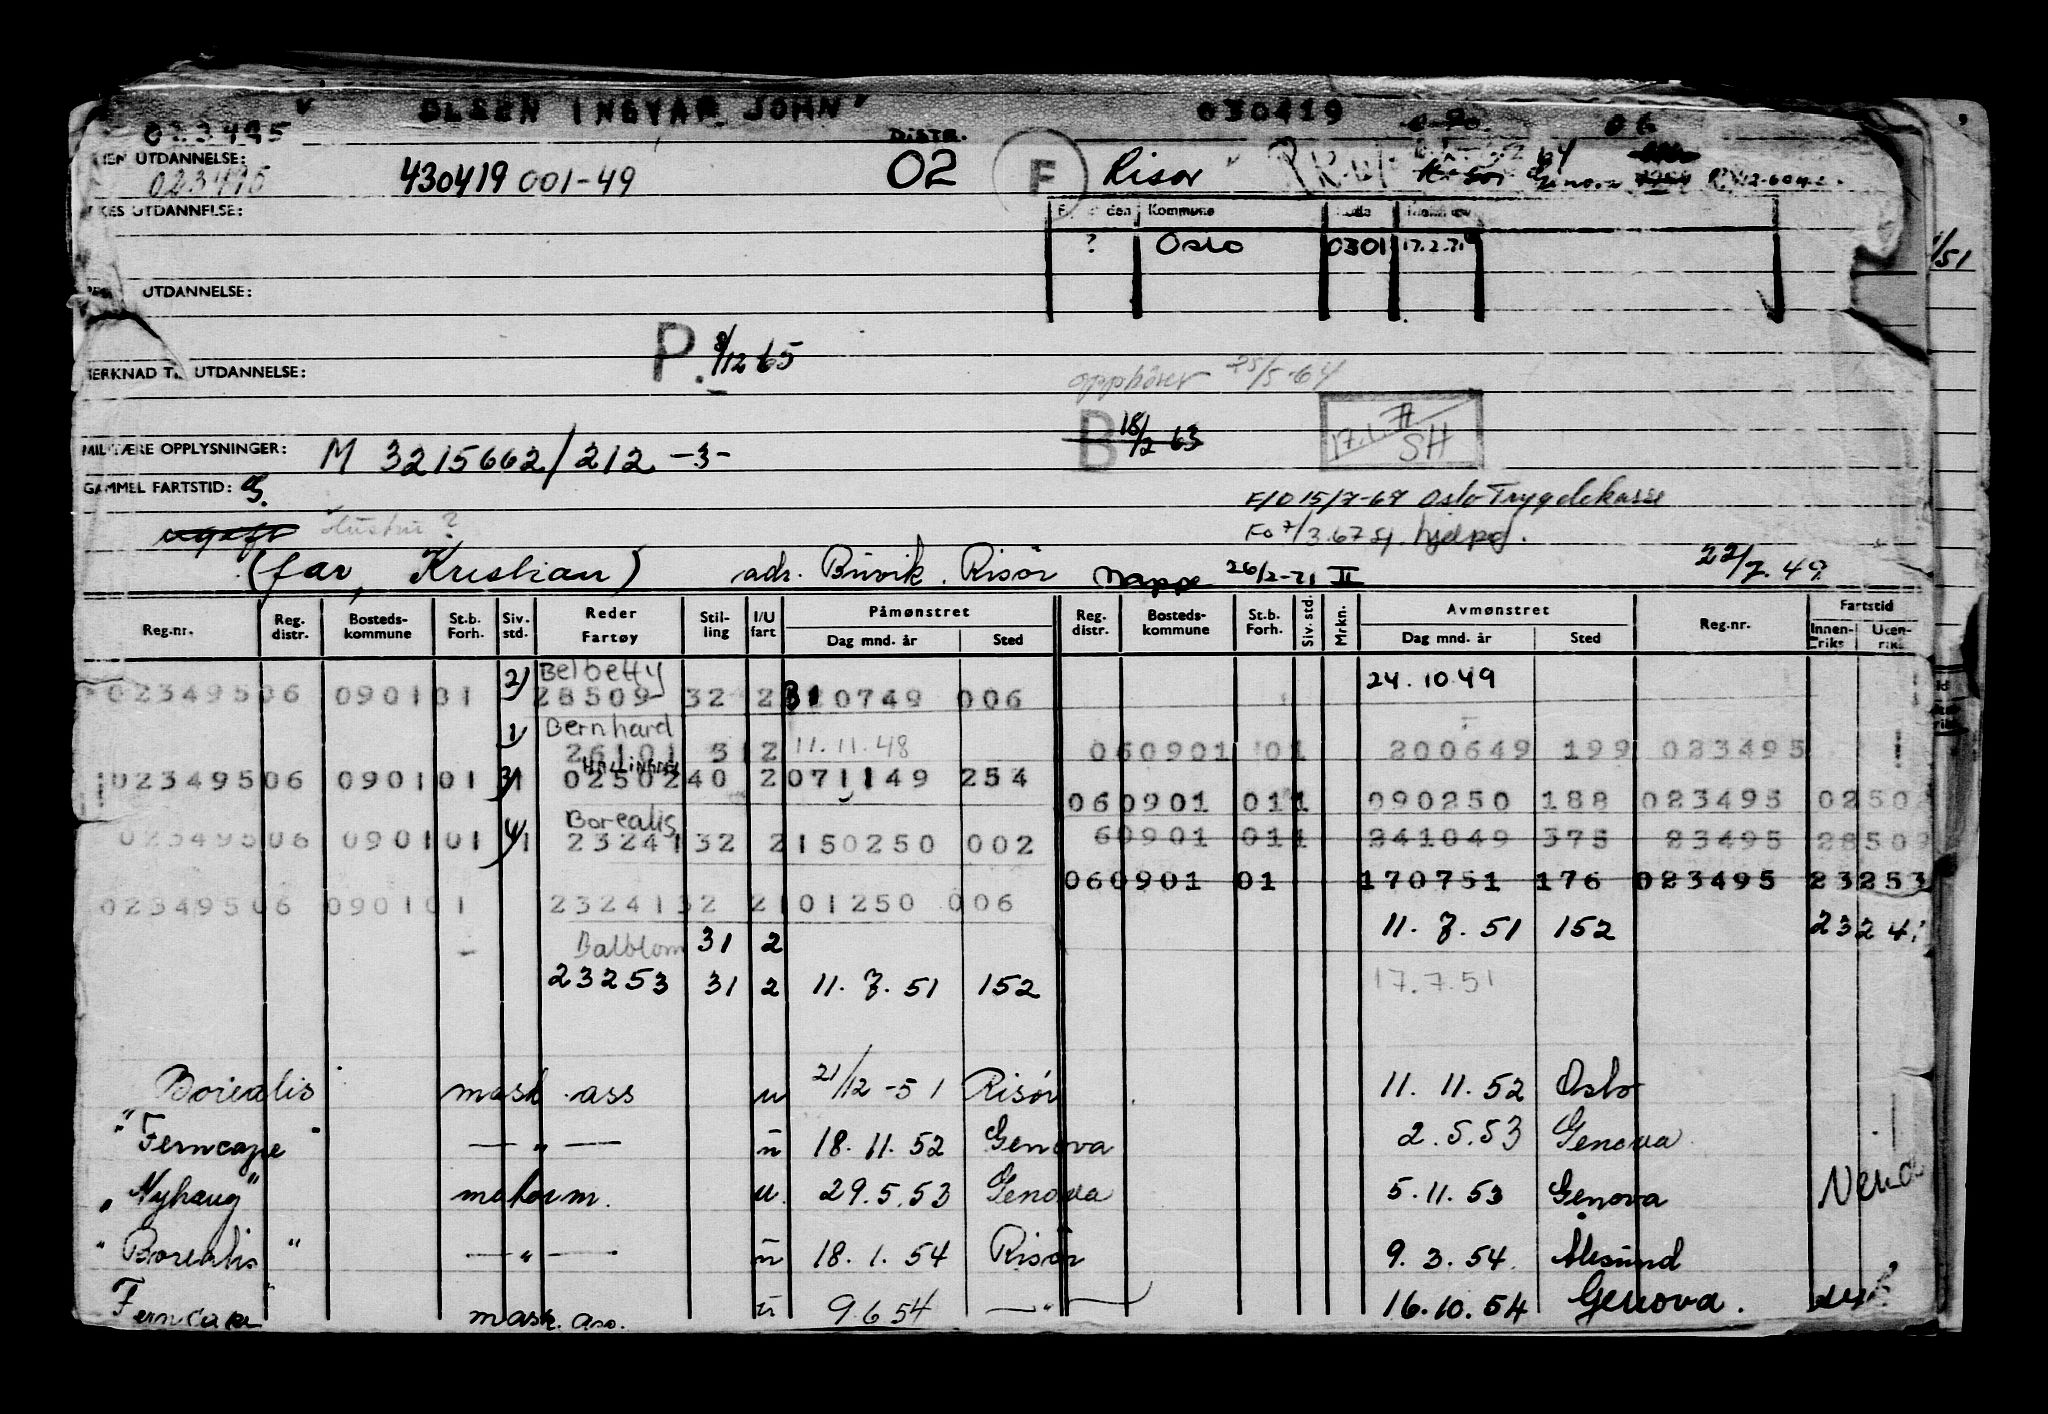 " OLSEN INGVAR JOHN" 030419
023495 DISTR. 06
UTDANNELSE: 023495 430419 001-49 02 F Risør Genova
UTDANNELSE: Kommune
? Oslo 0301 17.2.71
UTDANNELSE:
P. 8/12 65
UTDANNELSE: opphører 25/5-64
B 18/2 63 17.1.71 SH
MILITÆRE OPPLYSNINGER: M 3215662/212 -3-
GAMMEL FARTSTID: g.
F/O 15/7-67 Oslo Trygdekasse
ugift Hustru? Fo 7/3.67 sj. hjelpef.
(far, Kristian) adr. Buvik. Risør Mappe 26/2-71 II 22/7.49
Reg.nr. Reg. distr. Bosteds-kommune St.b. Forh. Siv. std. Reder Fartøy Stil-ling I/U fart Påmønstret Dag mnd. år Sted Reg. distr. Bosteds-kommune St.b. Forh. Siv. std. Mrkn. Avmønstret Dag mnd. år Sted Reg.nr. Fartstid Innen-riks Uten-riks
2) Belbetty 24.10.49
02349506 090101 28509 32 2 0749 006
1) Bernhard
26101 312 11.11.48 060901 01 200649 199 023495
HALLINGDAL
02349506 090101 3) 1 0250240 2 071149 254
060901 011 090250 188 023495 0250
Borealis
02349506 090101 4) 1 2324132 2 150250 002 60901 011 241049 375 23495 28509
060901 01 170751 176 023495 23253
02349506 090101 2324132 2 101250 006
11.7.51 152 2324
Balblom 31 2
23253 31 2 11.7.51 152 17.7.51
Borealis mask. ass u 21/12-51 Risør 11.11.52 Oslo
"Ferncape" — " — u 18.11.52 Genova 2.5.53 Genova
"Nyhaug" motorm. u. 29.5.53 Genova 5.11.53 Genova
"Borealis" — " — u 18.1.54 Risør 9.3.54 Ålesund
Ferncape mask. ass. u 9.6.54 — " — 16.10.54 Genova.